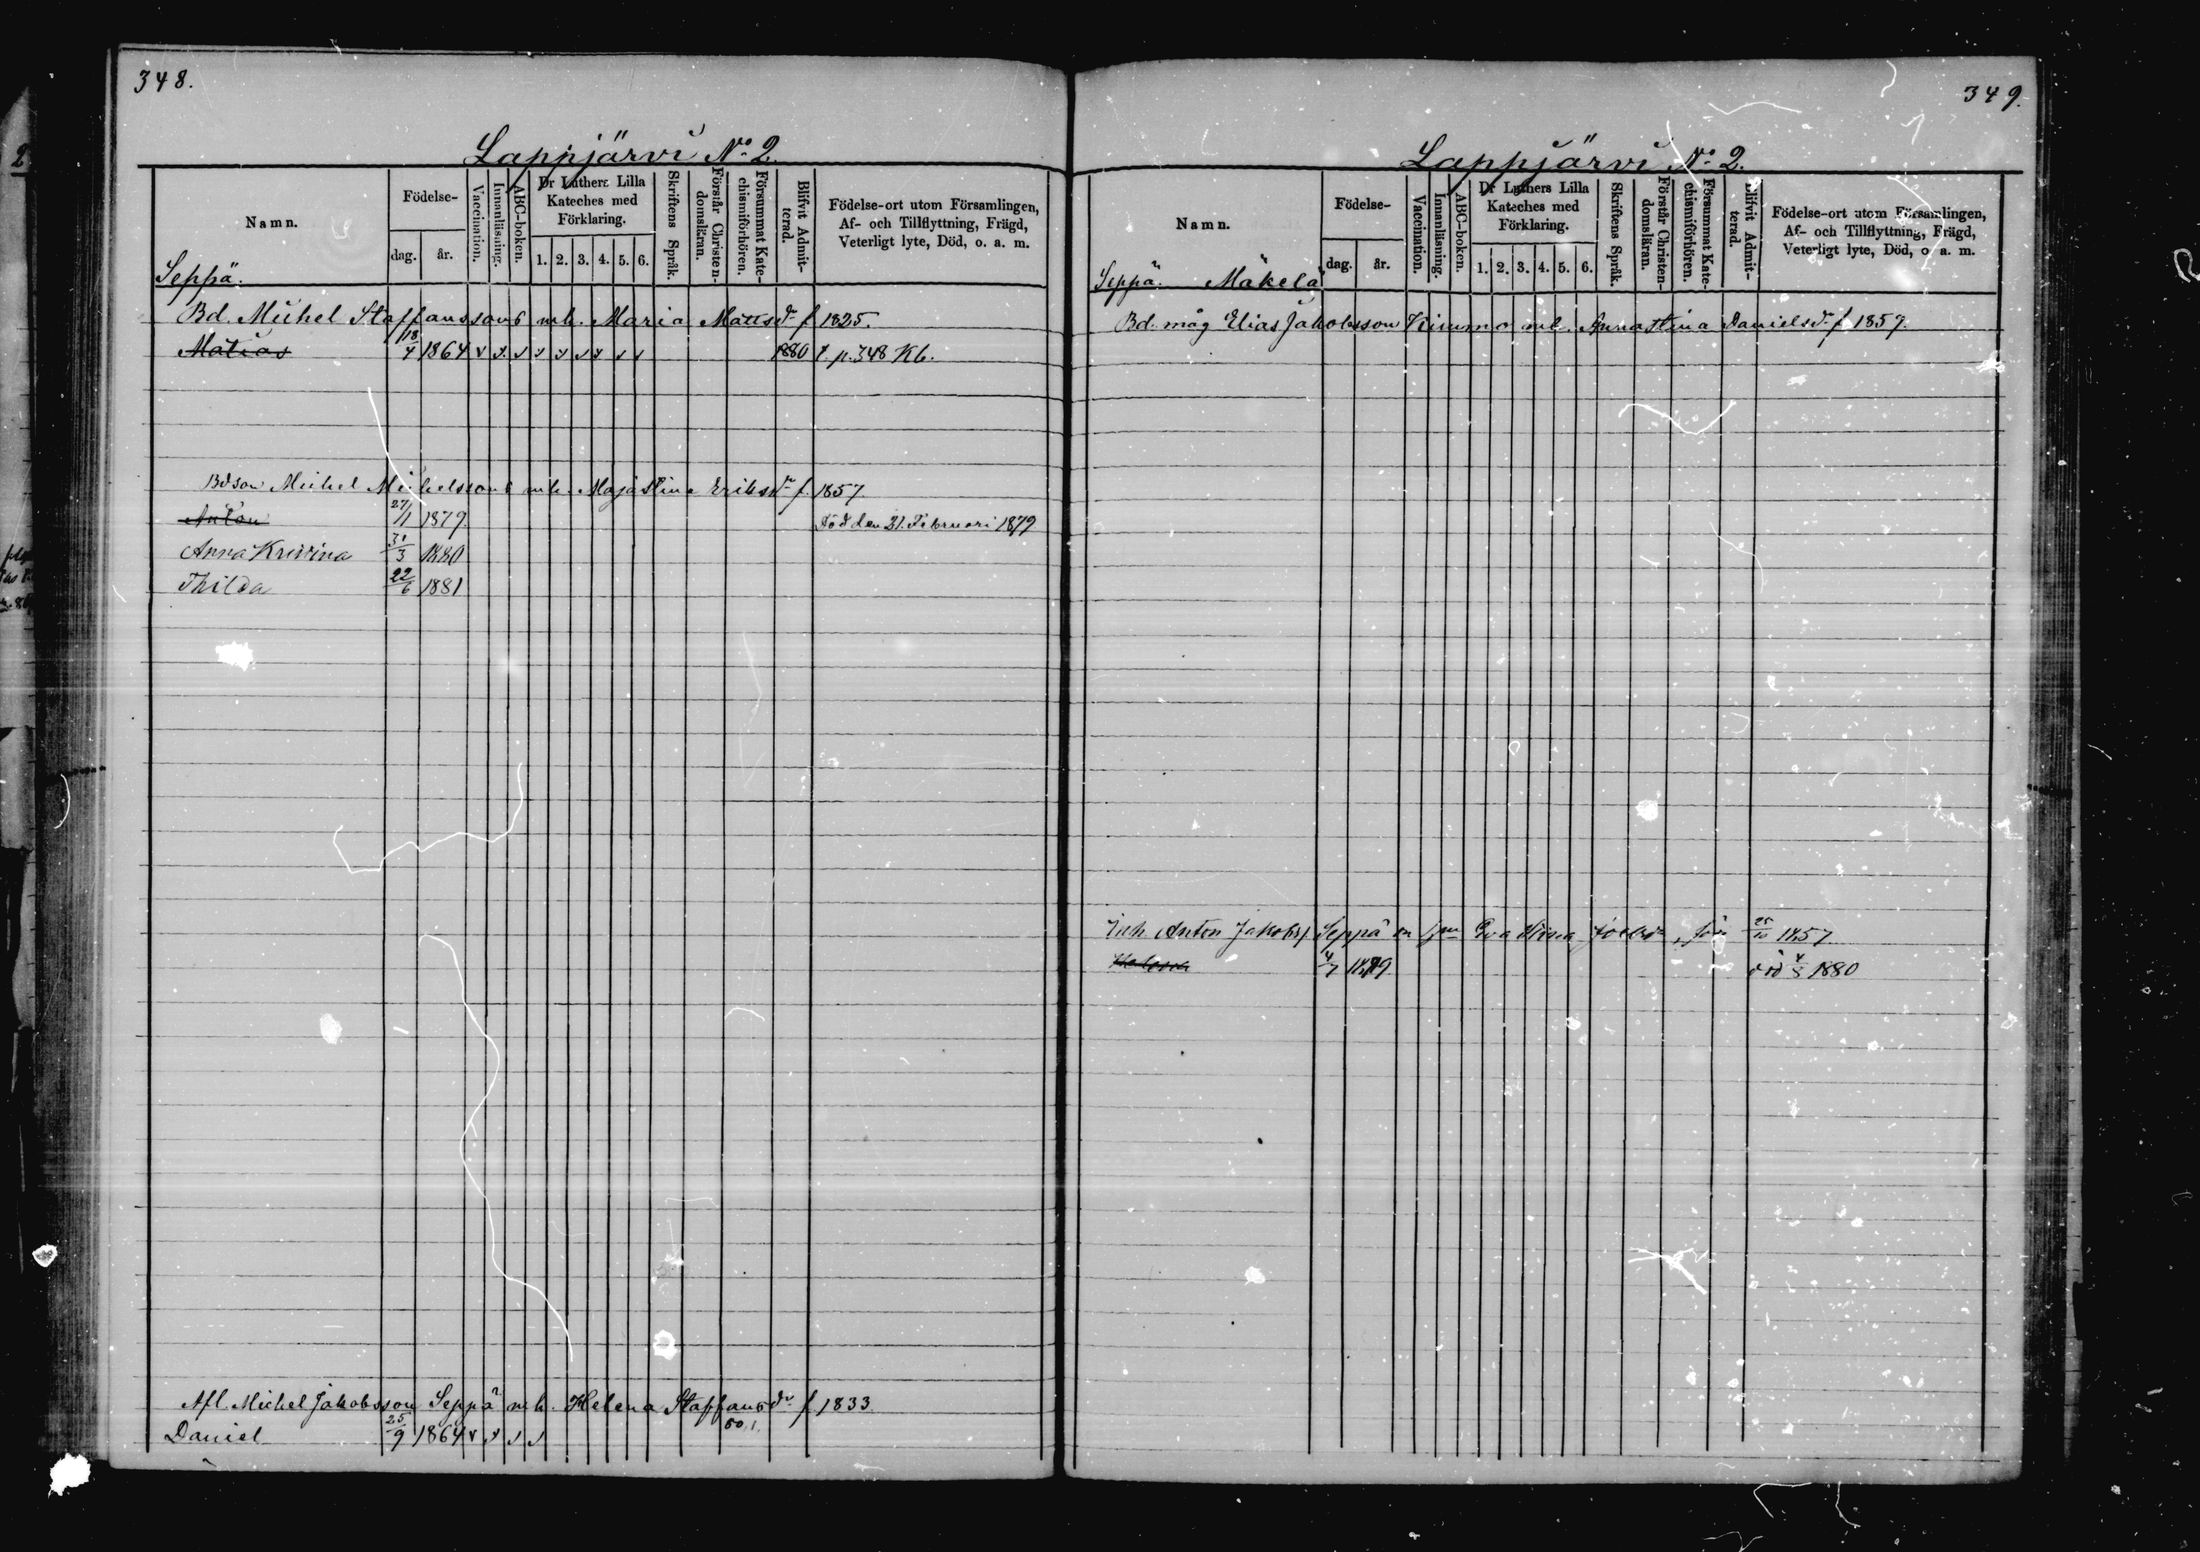 348.
Lappjärvi No 2.
Namn.
Födelse-
dag.
år.
Vaccination.
Innanläsning.
ABC-boken.
Dr Luthers Lilla Kateches med Förklaring.
1. 2. 3. 4. 5. 6.
Skriftens Språk.
Förstår Christendomsläran.
Försummat Katechismiförhören.
Blifvit Admitterad.
Födelse-ort utom Församlingen,
Af- och Tillflyttning, Frägd,
Veterligt lyte, Död, o. a. m.
Seppä.
Bd. Michel Staffanssons mh. Maria Mattsdr f. 1825.
Matias 18/4 1864 v v v v v v v v v 1880 f. p. 348 Kb.
Bdson Michel Michelssons mh. Maja Stina Eriksdr f. 1857
Anton 27/1 1879. Död den 21. Februari 1879
Anna Kristina 31/3 1880
Thilda 22/6 1881
Afl. Michel Jakobsson Seppä mh. Helena Staffansdr f. 1833.
Daniel 25/9 1864 v v v v 80. 1.
349.
Lappjärvi No 2.
Namn.
Födelse-
dag.
år.
Vaccination.
Innanläsning.
ABC-boken.
Dr Luthers Lilla Kateches med Förklaring.
1. 2. 3. 4. 5. 6.
Skriftens Språk.
Förstår Christendomsläran.
Försummat Katechismiförhören.
Blifvit Admitterad.
Födelse-ort utom Församlingen,
Af- och Tillflyttning, Frägd,
Veterligt lyte, Död, o. a. m.
Seppä. Mäkelä
Bd. måg Elias Jakobsson Kimmo mh. Anna Stina Danielsdr f. 1859.
Inh Anton Jakobs Seppä Eva Stina 25/10 1857
4/7 1879 död 4/5 1880